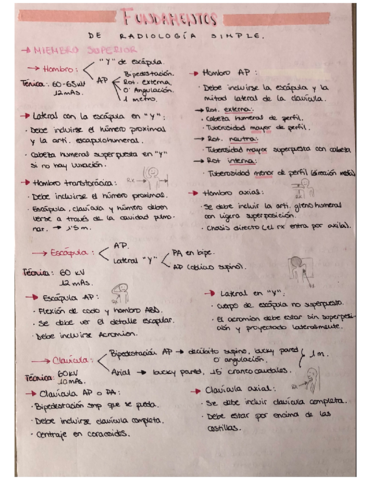 FUNDAMENTOS
DE RADIOLOGÍA SIMPLE.
→ MIEMBRO SUPERIOR
→ Hombro:
"Y" de escápula.
AP
Bipedestación.
Rot. externa.
0º Angulación.
1 metro.
Técnica: 60-65kV
12 mAs.
→ Lateral con la escápula en "Y":
· Debe incluirse el húmero proximal
y la arti. escapulohumeral.
· Cabeza humeral superpuesta en "Y"
si no hay luxación.
→ Hombro transtorácica:
Rx
· Debe incluirse el húmero proximal.
· Escápula, clavícula y húmero deben
verse a través de la cavidad pulmo-
nar. → 1'5 m.
→ Hombro AP:
· Debe incluirse la escápula y la
mitad lateral de la clavícula.
→ Rot. externa:
· Cabeza humeral de perfil.
· Tuberosidad mayor de perfil.
→ Rot. neutra:
· Tuberosidad mayor superpuesta con cabeza
→ Rot. interna:
· Tuberosidad menor de perfil (dirección medial)
→ Hombro axial:
· Se debe incluir la arti. gleno humeral
con ligera superposición.
· Chasis directo (el rx entra por axila).
→ Escápula:
AP.
Lateral "Y"
PA en bipe.
AD (oblicuo supino).
Técnica: 60 kV
12 mAs.
→ Escápula AP:
· Flexión de codo y hombro ABD.
· Se debe ver el detalle escapular.
· Debe incluirse Acromion.
→ Lateral en "Y".
· cuerpo de escápula no superpuesto.
· El acromion debe estar sin superposi-
ción y proyectado lateralmente.
→ Clavícula:
Bipedestación AP → decúbito supino, bucky pared, 0º angulación.
Axial → bucky pared, 15 craneo caudales.
1 m.
Técnica: 60kV
10 mAs.
→ Clavícula AP o PA:
· Bipedestación smp que se pueda.
· Debe incluirse clavícula completa.
· Centraje en coracoides.
→ Clavícula axial:
· Se debe incluir clavícula completa.
· Debe estar por encima de las
costillas.